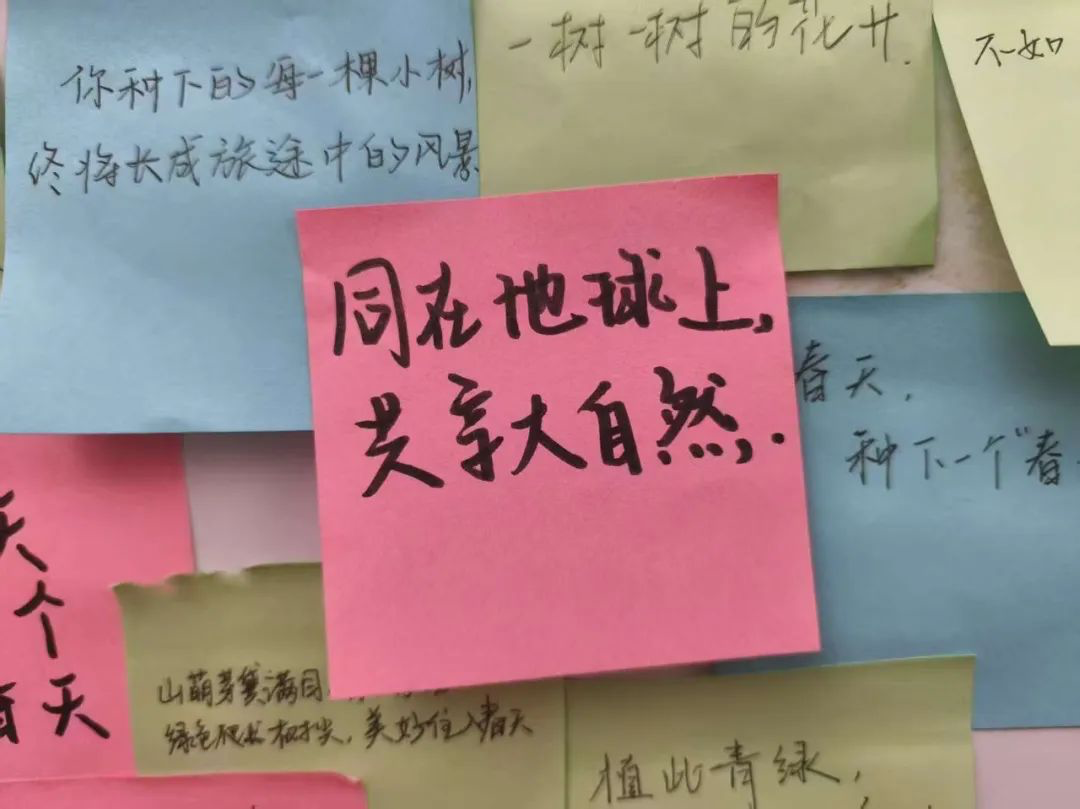 你种下的每一棵小树,
终将长成旅途中的风景
一树一树的花开.
不如
同在地球上,
共享大自然,.
春天,
种下一个“春
天
个
天
山萌芽
满目
绿色爬
树尖,美好住入春天
植此青绿,